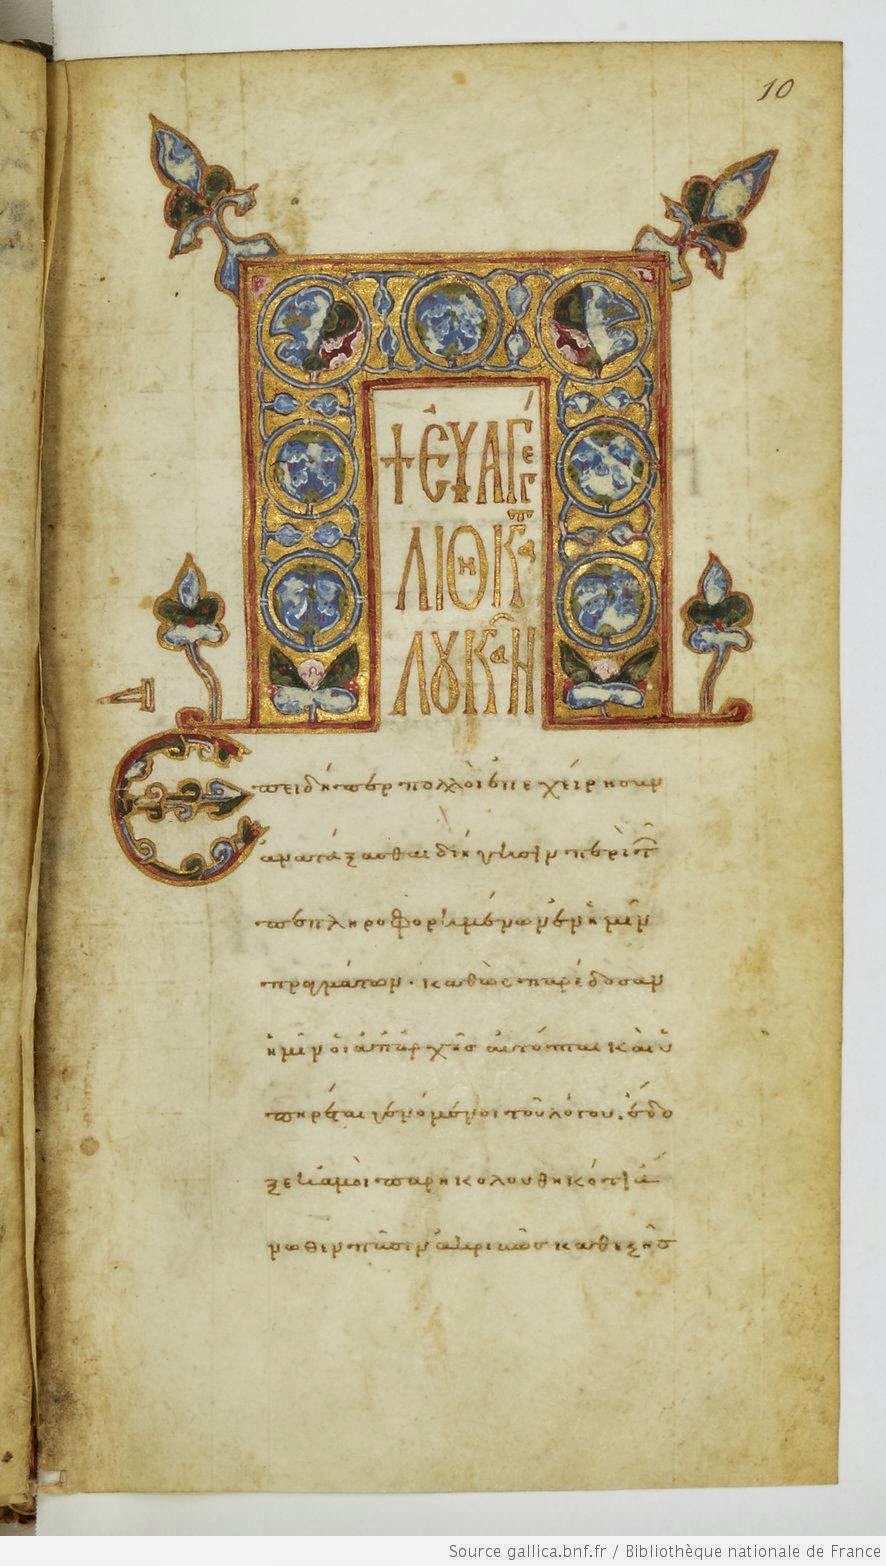 10
+ ἘΥΑΓΓέ
ΛΙΟΝ Κ̅Α̅Τ̅
ΛΟΥΚΑΝ
Ἐπειδήπερ πολλοὶ ἐπεχείρησαν
ἀνατάξασθαι διήγησιν περὶ τῶν
πεπληροφορημένων ἐν ἡμῖν
πραγμάτων· καθὼς παρέδοσαν
ἡμῖν οἱ ἀπαρχῆς αὐτόπται καὶ ὑ
πηρέται γενόμενοι τοῦ λόγου. ἔδο
ξε κἀμοὶ παρηκολουθηκότι ἄ
νωθεν πᾶσιν ἀκριβῶς καθεξῆς
Source gallica.bnf.fr / Bibliothèque nationale de France